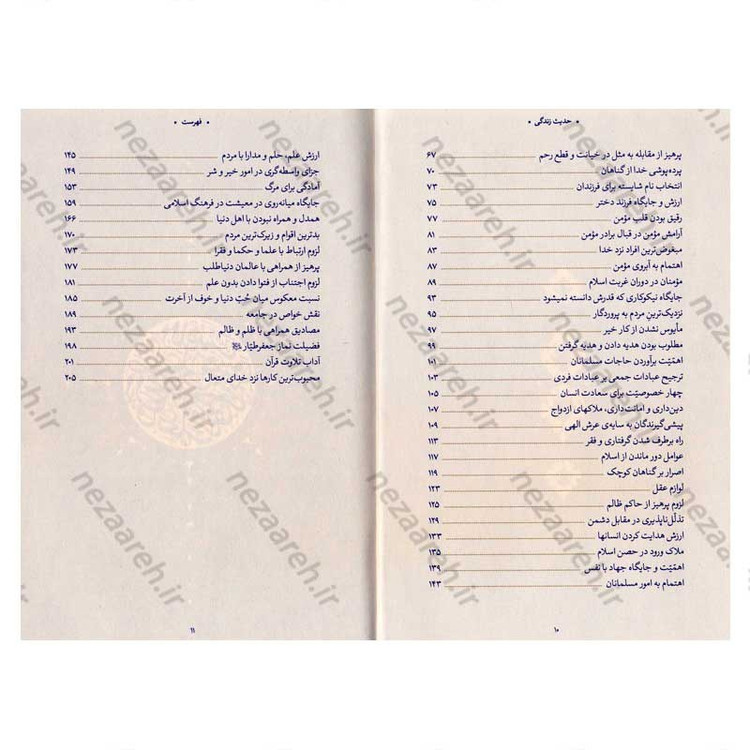 • حدیث زندگی •
پرهیز از مقابله به مثل در خیانت و قطع رحم ۶۷
پرده‌پوشی خدا از گناهان ۷۰
انتخاب نام شایسته برای فرزندان ۷۳
ارزش و جایگاه فرزند دختر ۷۵
رقیق بودن قلب مؤمن ۷۷
آرامش مؤمن در قبال برادر مؤمن ۸۱
مبغوض‌ترین افراد نزد خدا ۸۳
اهتمام به آبروی مؤمن ۸۷
مؤمنان در دوران غربت اسلام ۸۹
جایگاه نیکوکاری که قدرش دانسته نمیشود ۹۳
نزدیک‌ترین مردم به پروردگار ۹۵
مأیوس نشدن از کار خیر ۹۷
مطلوب بودن هدیه دادن و هدیه گرفتن ۹۹
اهمّیّت برآوردن حاجات مسلمانان ۱۰۱
ترجیح عبادات جمعی بر عبادات فردی ۱۰۳
چهار خصوصیّت برای سعادت انسان ۱۰۵
دین‌داری و امانت‌داری، ملاکهای ازدواج ۱۰۷
پیشی‌گیرندگان به سایه‌ی عرش الهی ۱۰۹
راه برطرف شدن گرفتاری و فقر ۱۱۳
عوامل دور ماندن از اسلام ۱۱۷
اصرار بر گناهان کوچک ۱۱۹
لوازم عقل ۱۲۳
لزوم پرهیز از حاکم ظالم ۱۲۵
تذلّل‌ناپذیری در مقابل دشمن ۱۲۹
ارزش هدایت کردن انسانها ۱۳۳
ملاک ورود در حصن اسلام ۱۳۵
اهمّیّت و جایگاه جهاد با نفس ۱۳۹
اهتمام به امور مسلمانان ۱۴۳
۱۰
• فهرست •
ارزش علم، حلم و مدارا با مردم ۱۴۵
جزای واسطه‌گری در امور خیر و شر ۱۴۹
آمادگی برای مرگ ۱۵۳
جایگاه میانه‌روی در معیشت در فرهنگ اسلامی ۱۵۹
همدل و همراه نبودن با اهل دنیا ۱۶۶
بدترین اقوام و زیرک‌ترین مردم ۱۷۰
لزوم ارتباط با علما و حکما و فقرا ۱۷۳
پرهیز از همراهی با عالمان دنیاطلب ۱۷۷
لزوم اجتناب از فتوا دادن بدون علم ۱۸۱
نسبت معکوس میان حُبّ دنیا و خوف از آخرت ۱۸۵
نقش خواص در جامعه ۱۸۹
مصادیق همراهی با ظلم و ظالم ۱۹۳
فضیلت نماز جعفر طیّار ۱۹۸
آداب تلاوت قرآن ۲۰۱
محبوب‌ترین کارها نزد خدای متعال ۲۰۵
۱۱
nezaareh.ir